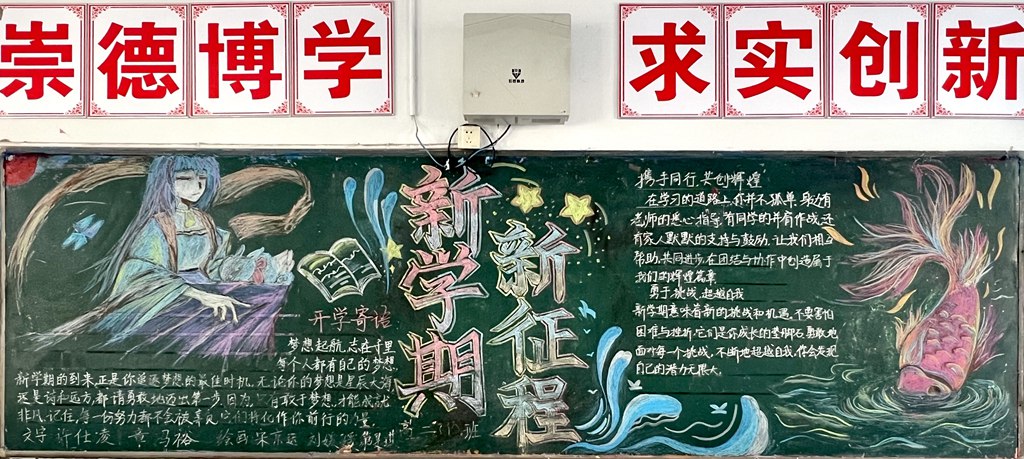 崇德博学
求实创新
新学期
新征程
开学寄语
梦想起航,志在千里
每个人都有自己的梦想
新学期的到来,正是你追逐梦想的最佳时机,无论你的梦想是星辰大海
还是诗和远方,都请勇敢地迈出第一步,因为,有敢于梦想,才能成就
非凡,记住,每一份努力都不会被辜负,它们将化作你前行的力量
文字 许仕凌 马裕 绘画 梁京
班
携手同行,共创辉煌
在学习的道路上,你并不孤单,身边有
老师的悉心指导,有同学的并肩作战,还
有家人默默的支持与鼓励,让我们相互
帮助,共同进步,在团结与协作中创造属于
我们的辉煌篇章
勇于挑战,超越自我
新学期意味着新的挑战和机遇,不要害怕
困难与挫折,它们是你成长的垫脚石,勇敢地
面对每一个挑战,不断地超越自我,你会发现
自己的潜力无限大。